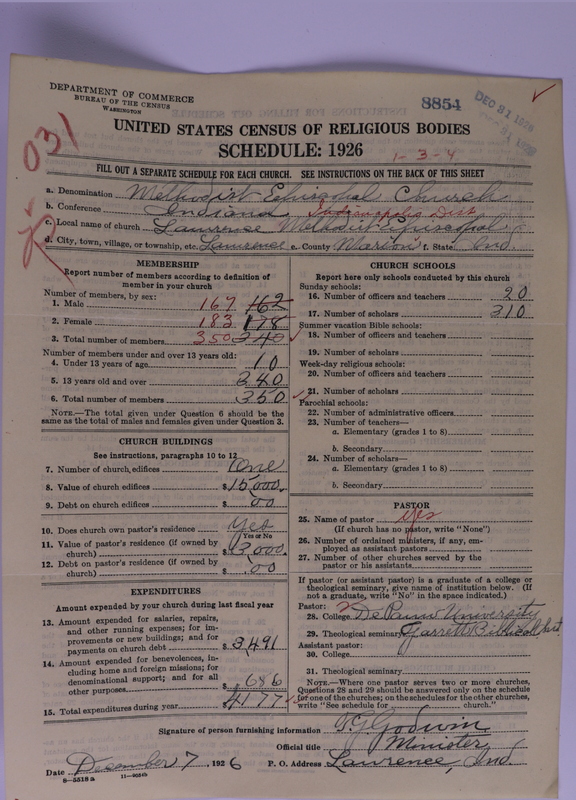 DEPARTMENT OF COMMERCE
BUREAU OF THE CENSUS
WASHINGTON
8854
DEC 31 1926
031
UNITED STATES CENSUS OF RELIGIOUS BODIES
SCHEDULE: 1926
1-3-4
FILL OUT A SEPARATE SCHEDULE FOR EACH CHURCH. SEE INSTRUCTIONS ON THE BACK OF THIS SHEET
a. Denomination Methodist Episcopal Church
b. Conference Indiana Indianapolis Dist
c. Local name of church Lawrence Methodist Episcopal
d. City, town, village, or township, etc. Lawrence e. County Marion f. State Ind.
MEMBERSHIP
Report number of members according to definition of
member in your church
Number of members, by sex:
1. Male 167 162
2. Female 183 178
3. Total number of members 350 340
Number of members under and over 13 years old:
4. Under 13 years of age 10
5. 13 years old and over 340
6. Total number of members 350
NOTE.—The total given under Question 6 should be the
same as the total of males and females given under Question 3.
CHURCH BUILDINGS
See instructions, paragraphs 10 to 12
7. Number of church edifices One
8. Value of church edifices $15,000.
9. Debt on church edifices $ 00
10. Does church own pastor's residence Yes
Yes or No
11. Value of pastor's residence (if owned by
church) $3,000.
12. Debt on pastor's residence (if owned by
church) $ .00
EXPENDITURES
Amount expended by your church during last fiscal year
13. Amount expended for salaries, repairs,
and other running expenses; for im-
provements or new buildings; and for
payments on church debt $3,491
14. Amount expended for benevolences, in-
cluding home and foreign missions; for
denominational support; and for all
other purposes $ 686
15. Total expenditures during year $4177
CHURCH SCHOOLS
Report here only schools conducted by this church
Sunday schools:
16. Number of officers and teachers 20
17. Number of scholars 210
Summer vacation Bible schools:
18. Number of officers and teachers
19. Number of scholars
Week-day religious schools:
20. Number of officers and teachers
21. Number of scholars
Parochial schools:
22. Number of administrative officers
23. Number of teachers—
a. Elementary (grades 1 to 8)
b. Secondary
24. Number of scholars—
a. Elementary (grades 1 to 8)
b. Secondary
PASTOR
25. Name of pastor yes
(If church has no pastor, write "None")
26. Number of ordained ministers, if any, em-
ployed as assistant pastors
27. Number of other churches served by the
pastor or his assistants
If pastor (or assistant pastor) is a graduate of a college or
theological seminary, give name of institution below. (If
not a graduate, write "No" in the space indicated.)
Pastor: 2
28. College DePauw University
29. Theological seminary Garrett Biblical Inst
Assistant pastor:
30. College
31. Theological seminary
NOTE.—Where one pastor serves two or more churches,
Questions 28 and 29 should be answered only on the schedule
for one of the churches; on the schedules for the other churches,
write "See schedule for church."
Signature of person furnishing information Godwin
Official title Minister
Date December 7, 1926 P. O. Address Lawrence, Ind.
8-5518a 11-9024b